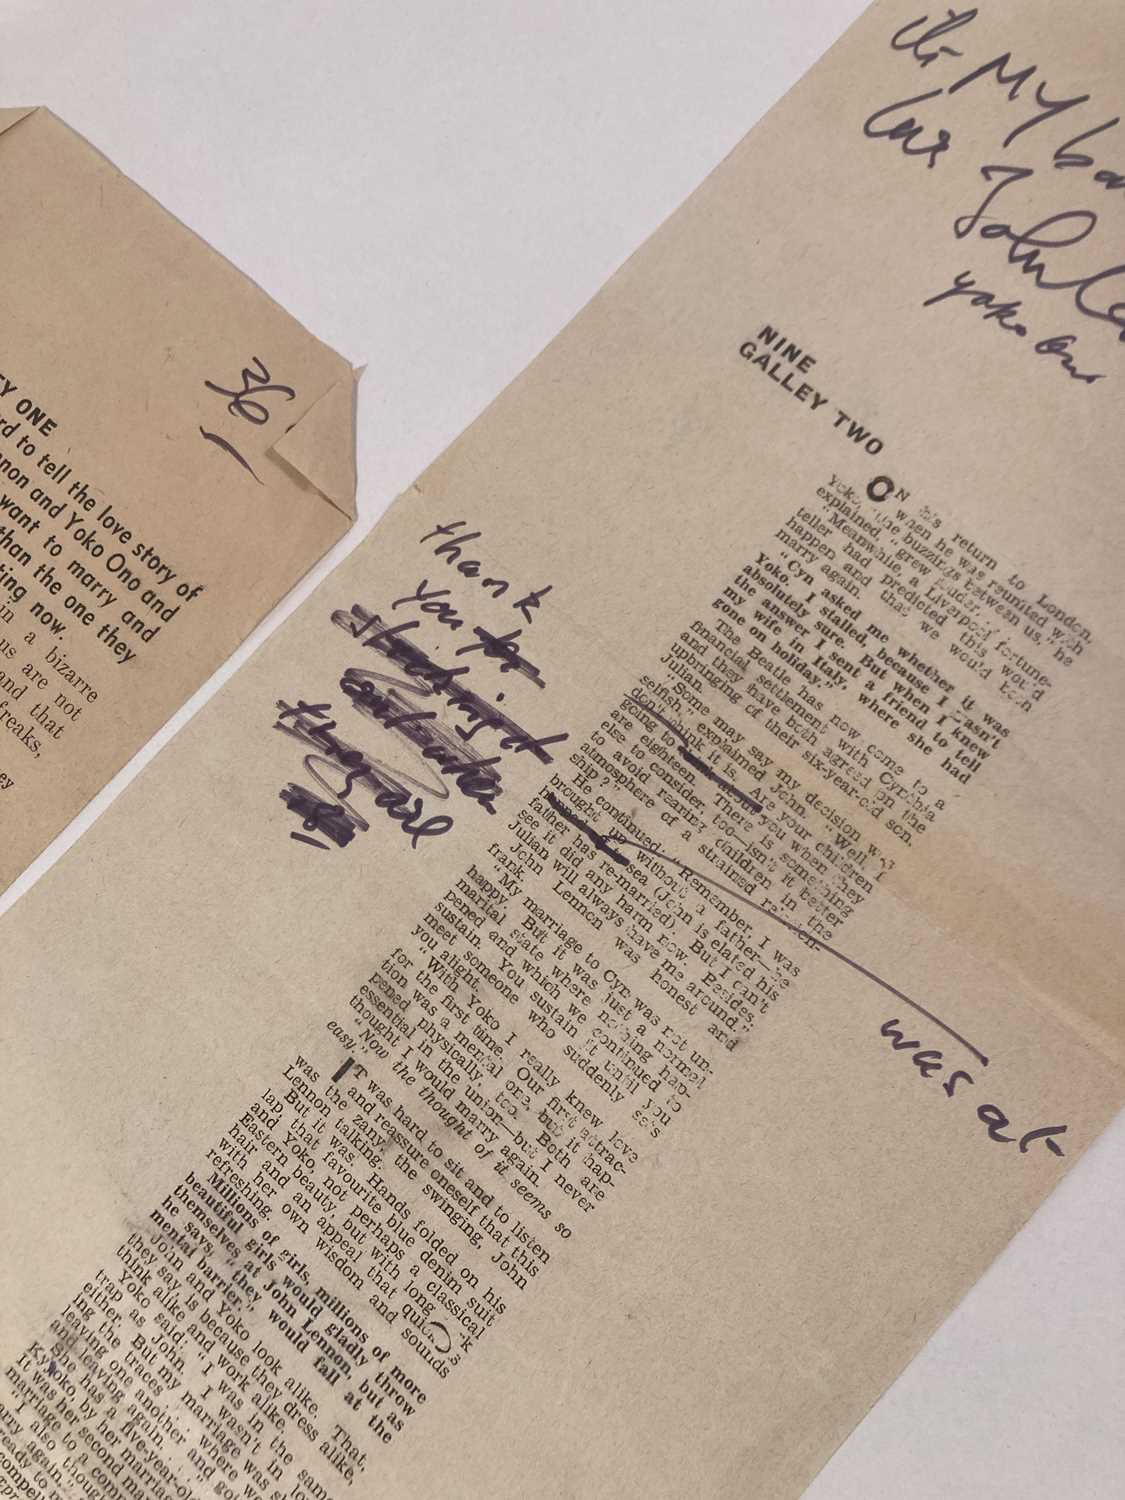 36
Y ONE
rd to tell the love story of
non and Yoko Ono and
want to marry and
than the one they
ting now.
in a bizarre
us are not
and that
freaks,
ey
MY
John
yoko ono
NINE
GALLEY TWO
thank
you for
the girl
was at
ON his return to London,
when he was reunited with
Yoko, "the buzzings between us," he
explained, "grew louder.
"Meanwhile, a Liverpool fortune-
teller had predicted this would
happen and that we would both
marry again.
"Cyn asked me whether it was
Yoko. I stalled, because I wasn't
absolutely sure. But when I knew
the answer I sent a friend to tell
my wife in Italy, where she had
gone on holiday."
The Beatle has now come to a
financial settlement with Cynthia
and they have both agreed on the
upbringing of their six-year-old son,
Julian.
"Some may say my decision was
selfish," explained John. "Well, I
don't think it is. Are your children
going to you when they
are eighteen. There is something
else to consider, too—isn't it better
to avoid rearing children in the
atmosphere of a strained relation-
ship?"
He continued: "Remember, I was
brought up without a father—he
sea (John is elated his
father has re-married). But I can't
see it did any harm now. Besides,
Julian will always have me around."
John Lennon was honest and
frank.
"My marriage to Cyn was not un-
happy. But it was just a normal
marital state where nothing hap-
pened and which we continued to
sustain. You sustain it until you
meet someone who suddenly sets
you alight.
"With Yoko I really knew love
for the first time. Our first attrac-
tion was a mental one, but it hap-
pened physically, too. Both are
essential in the union—but I never
thought I would marry again.
"Now the thought of it seems so
easy."
IT was hard to sit and to listen
and reassure oneself that this
was the zany, the swinging, John
Lennon talking.
But it was. Hands folded on his
lap, that favourite blue denim suit
and Yoko, not perhaps a classical
Eastern beauty, but with long
hair and an appeal that
with her own wisdom and sounds
refreshing.
Millions of girls, millions of more
beautiful girls would gladly throw
themselves at John Lennon, but as
he says, "they would fall at the
mental barrier."
John and Yoko look alike. That,
they say, is because they dress alike,
think alike and work alike.
Yoko said: "I was in the same
trap as John. I wasn't in
either. But my marriage was
ing the traces
leaving one another and
and leaving again.
She has a five-year-old
Kyoko, by her
It was her second
marriage to a
"I also